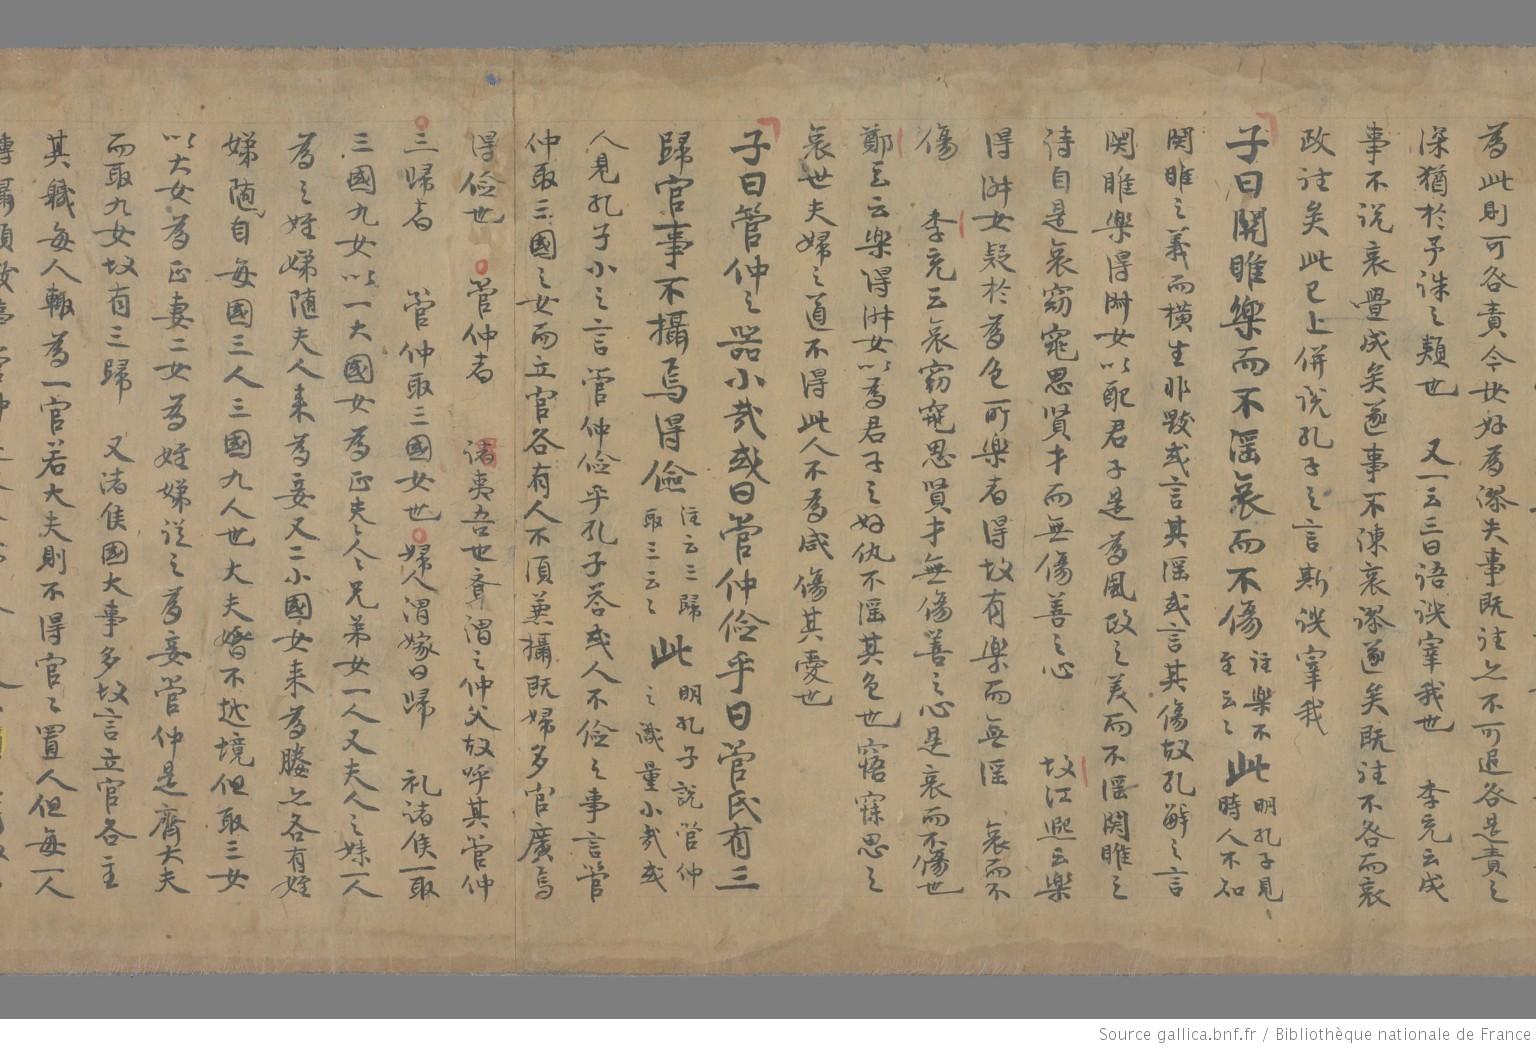 為此則可咎責今汝好為謬失事既往亦不可追咎是責之
深猶於予誅之類也　又一云三曰語誅宰我也　李充云成
事不說哀舋成矣遂事不諫哀謬遂矣既往不咎而哀
政往矣此已上併說孔子之言斯誅宰我
子曰關雎樂而不淫哀而不傷注樂不至云之此明孔子見時人不知
関雎之義而橫生非毀或言其淫或言其傷故孔解之言
関雎樂得淑女以配君子是為風政之美而不淫関雎之
詩自是哀窈窕思賢才而無傷善之心　故江熙云樂
得淑女疑於為色所樂者得故有樂而無淫　哀而不
傷　李充云哀窈窕思賢才無傷善之心是哀而不傷也
鄭玄云樂得淑女以為君子之好仇不淫其色也寤寐思之
哀世夫婦之道不得此人不為咸傷其憂也
子曰管仲之器小哉或曰管仲儉乎曰管氏有三
歸官事不攝焉得儉注云三歸取三云之此明孔子說管仲之識量小哉或
人見孔子小之言管仲儉乎孔子答或人不儉之事言管
仲取三國之女而立官各有人不須兼攝既婦多官廣焉
得儉也　管仲者　諸夷吾也齊謂之仲父故呼其管仲
三歸者　管仲取三國女也婦人謂嫁曰歸　礼諸侯一取
三國九女以一大國女為正夫之人之兄弟女一人又夫人之妹一人
為之姪娣隨夫人来為妾又二小國女来為媵亦各有姪
娣隨自每國三人三國九人也大夫婚不越境但取三女
以大女為正妻二女為姪娣從之為妾管仲是齊大夫
而取九女故有三歸　又諸侯國大事多故言立官各主
其職每人輙為一官若大夫則不得官之置人但每一人
Source gallica.bnf.fr / Bibliothèque nationale de France